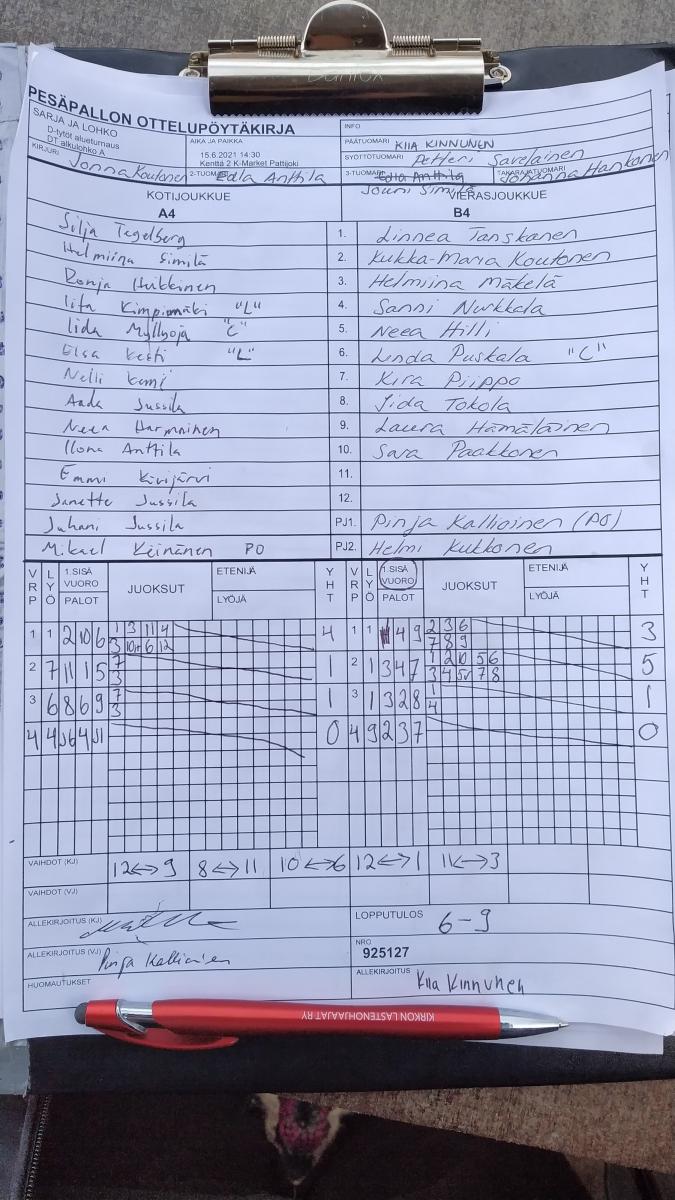 Daniox
PESÄPALLON OTTELUPÖYTÄKIRJA
INFO
SARJA JA LOHKO
D-tytöt alueturnaus
DT alkulohko A
AIKA JA PAIKKA
15.6.2021 14:30
Kenttä 2 K-Market Pattijoki
PÄÄTUOMARI KIIA KINNUNEN
SYÖTTÖTUOMARI Petteri Savelainen
KIRJURI Jonna Koutonen
2-TUOMARI Edla Anttila
3-TUOMARI Edla Anttila
Jouni Similä
TAKARAJATUOMARI Johanna Hankonen
KOTIJOUKKUE VIERASJOUKKUE
A4 B4
Silja Tegelberg 1. Linnea Tanskanen
Helmiina Similä 2. Kukka-Maria Koutonen
Ronja Huikkinen 3. Helmiina Mäkelä
Iita Kimpimäki "L" 4. Sanni Nurkkala
Iida Myllyoja "C" 5. Neea Hilli
Elsa Kesti "L" 6. Linda Puskala "C"
Nelli Kemi 7. Kira Piippo
Aada Jussila 8. Iida Tokola
Neea Harmninen 9. Laura Hämäläinen
Ilona Anttila 10. Sara Paakkonen
Emmi Kivijärvi 11.
Janette Jussila 12.
Juhani Jussila PJ1. Pinja Kallioinen (PO)
Mikael Keinänen PO PJ2. Helmi Kukkonen
VRP LYÖ 1.SISÄ VUORO PALOT JUOKSUT ETENIJÄ LYÖJÄ YHT VRP LYÖ 1.SISÄ VUORO PALOT JUOKSUT ETENIJÄ LYÖJÄ YHT
1 1 2 10 6 1 3 11 4 4 1 1 4 9 2 3 6 3
3 10 6 12 7 8 9
2 7 11 1 5 7 1 2 1 3 4 7 1 2 10 5 6 5
3 3 4 5 7 8
3 6 8 6 9 7 1 3 1 3 2 8 1 1
3 4
4 4 0 4 9 2 3 7 0
VAIHDOT (KJ) 12↔9 8↔11 10↔6 12↔1 11↔3
VAIHDOT (VJ)
ALLEKIRJOITUS (KJ)
LOPPUTULOS 6-9
ALLEKIRJOITUS (VJ) Pinja Kallioinen
NRO
925127
HUOMAUTUKSET
ALLEKIRJOITUS Kiia Kinnunen
KIRKON LASTENOHJAAJAT RY